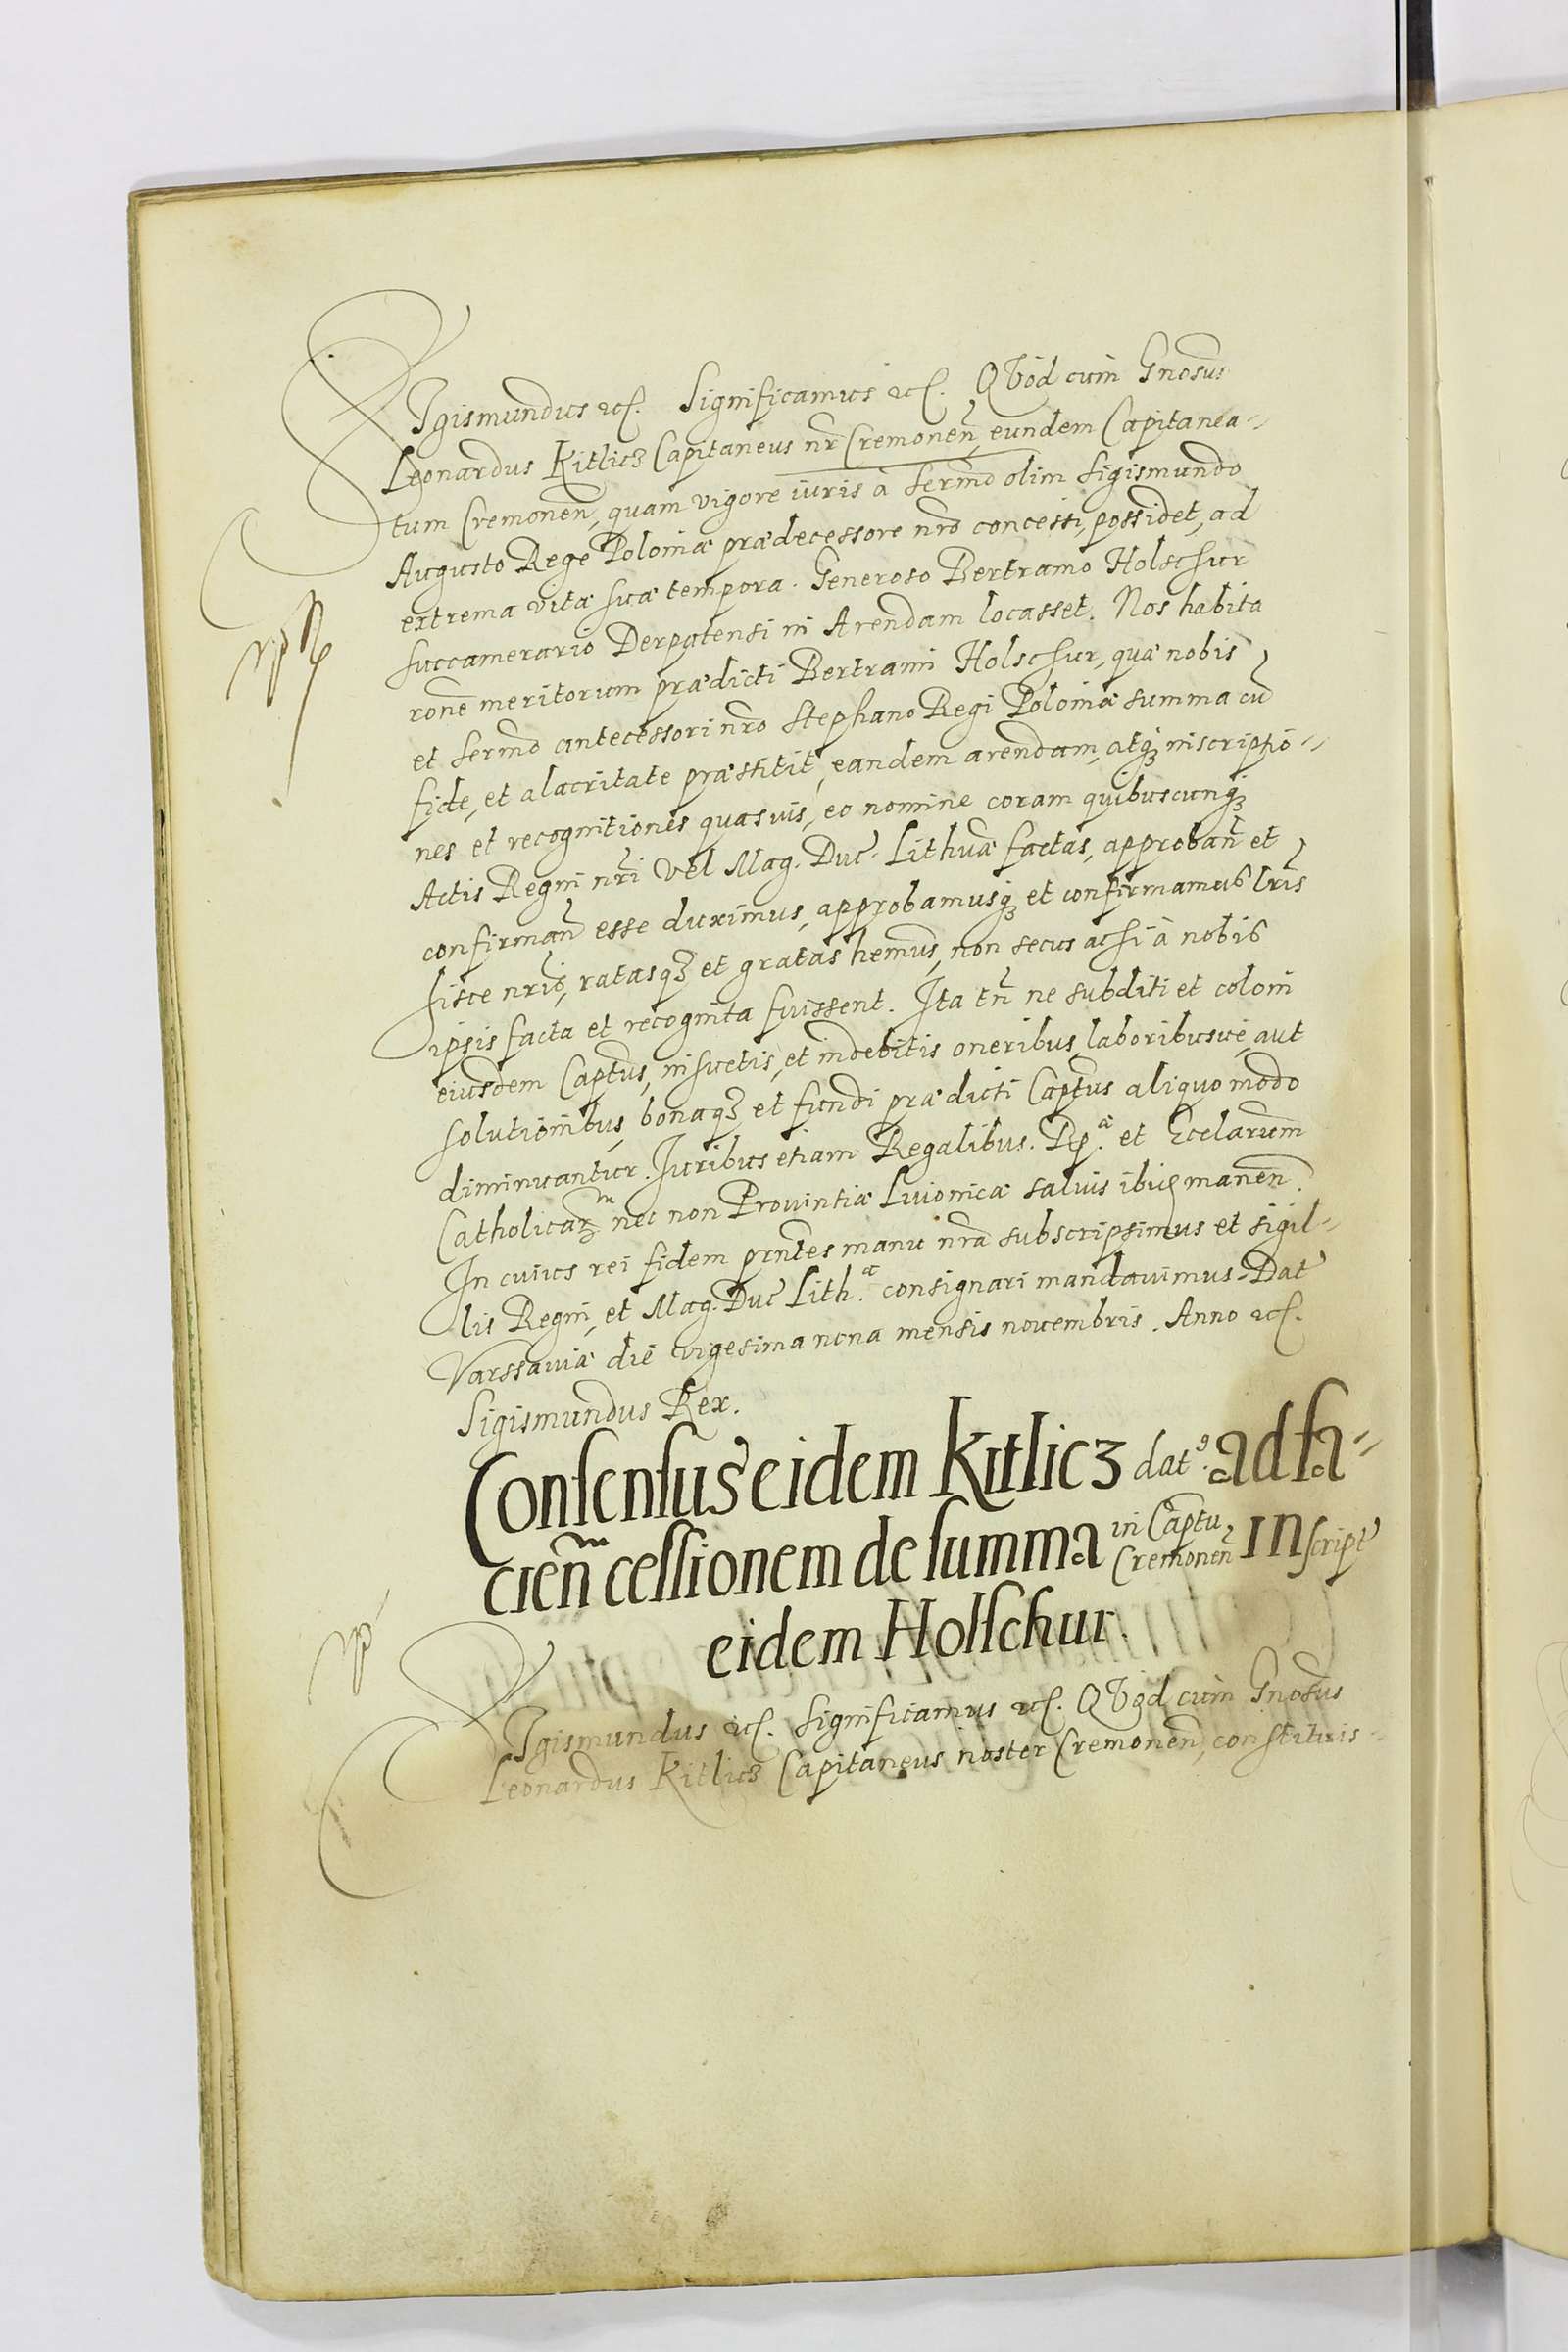 SIgismundus etc. Significamus etc. QVod cum Gnosus
Leonardus Kitlicz Capitaneus nr Cremonen, eundem Capitanea-
tum Cremonen, quam vigore iuris à Sermo olim Sigismundo
Augusto Rege Poloniæ prædecessore nro concessi, possidet, ad
extrema vitæ suæ tempora. Generoso Bertramo Holschur
succamerario Derpatensi in Arendam locasset. Nos habita
rone meritorum prædicti Bertrami Holschur, quæ nobis
et Sermo antecessori nro Stephano Regi Poloniæ summa cu
fide, et alacritate præstitit, eandem arendam, atq; inscriptio-
nes et recognitiones quasuis, eo nomine coram quibuscunq;
Actis Regni nri vel Mag. Duc. Lithuæ factas, approban et
confirman esse duximus, approbamusq; et confirmamus lris
hisce nris, ratasq; et gratas hemus, non secus ac si à nobis
ipsis facta et recognita fuissent. Ita tn ne subditi et coloni
eiusdem Captus, insuetis, et indebitis oneribus, laboribusue, aut
solutionibus, bonaq; et fundi prædicti Captus aliquo modo
diminuantur. Iuribus etiam Regalibus. Rp.æ et Ecclarum
Catholicaꝝ nec non Prouintiæ Liuonicæ saluis ibiq; manen.
In cuius rei fidem prntes manu nra subscripsimus et sigil-
lis Regni, et Mag. Duc Lith.æ consignari mandauimus. Dat
Varssauiæ die vigesima nona mensis nouembris. Anno etc.
Sigismundus Rex.
Consensus eidem Kitlicz dat9. ad fa-
cien cessionem de summa in Captu Cremonen inscript
eidem Holschur.
SIgismundus etc. Significamus etc. QVod cum Gnosus
Leonardus Kitlicz Capitaneus noster Cremonen, constituis-